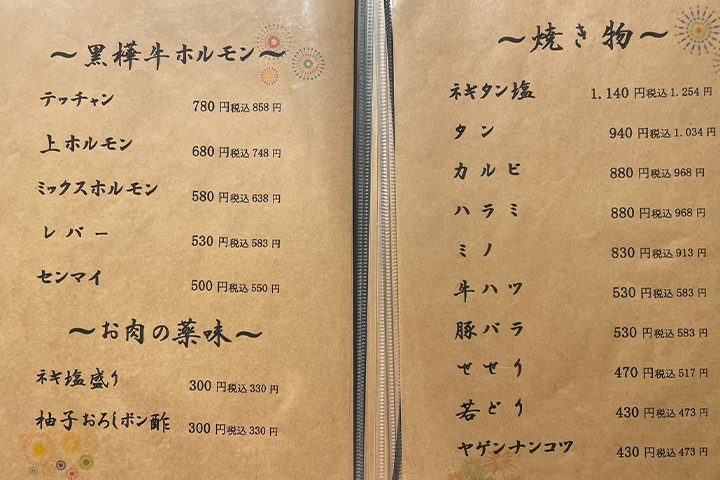 ～黒樺牛ホルモン～
テッチャン 780円税込858円
上ホルモン 680円税込748円
ミックスホルモン 580円税込638円
レバー 530円税込583円
センマイ 500円税込550円
～お肉の薬味～
ネギ塩盛り 300円税込330円
柚子おろしポン酢 300円税込330円
～焼き物～
ネギタン塩 1.140円税込1.254円
タン 940円税込1.034円
カルビ 880円税込968円
ハラミ 880円税込968円
ミノ 830円税込913円
牛ハツ 530円税込583円
豚バラ 530円税込583円
せせり 470円税込517円
若どり 430円税込473円
ヤゲンナンコツ 430円税込473円